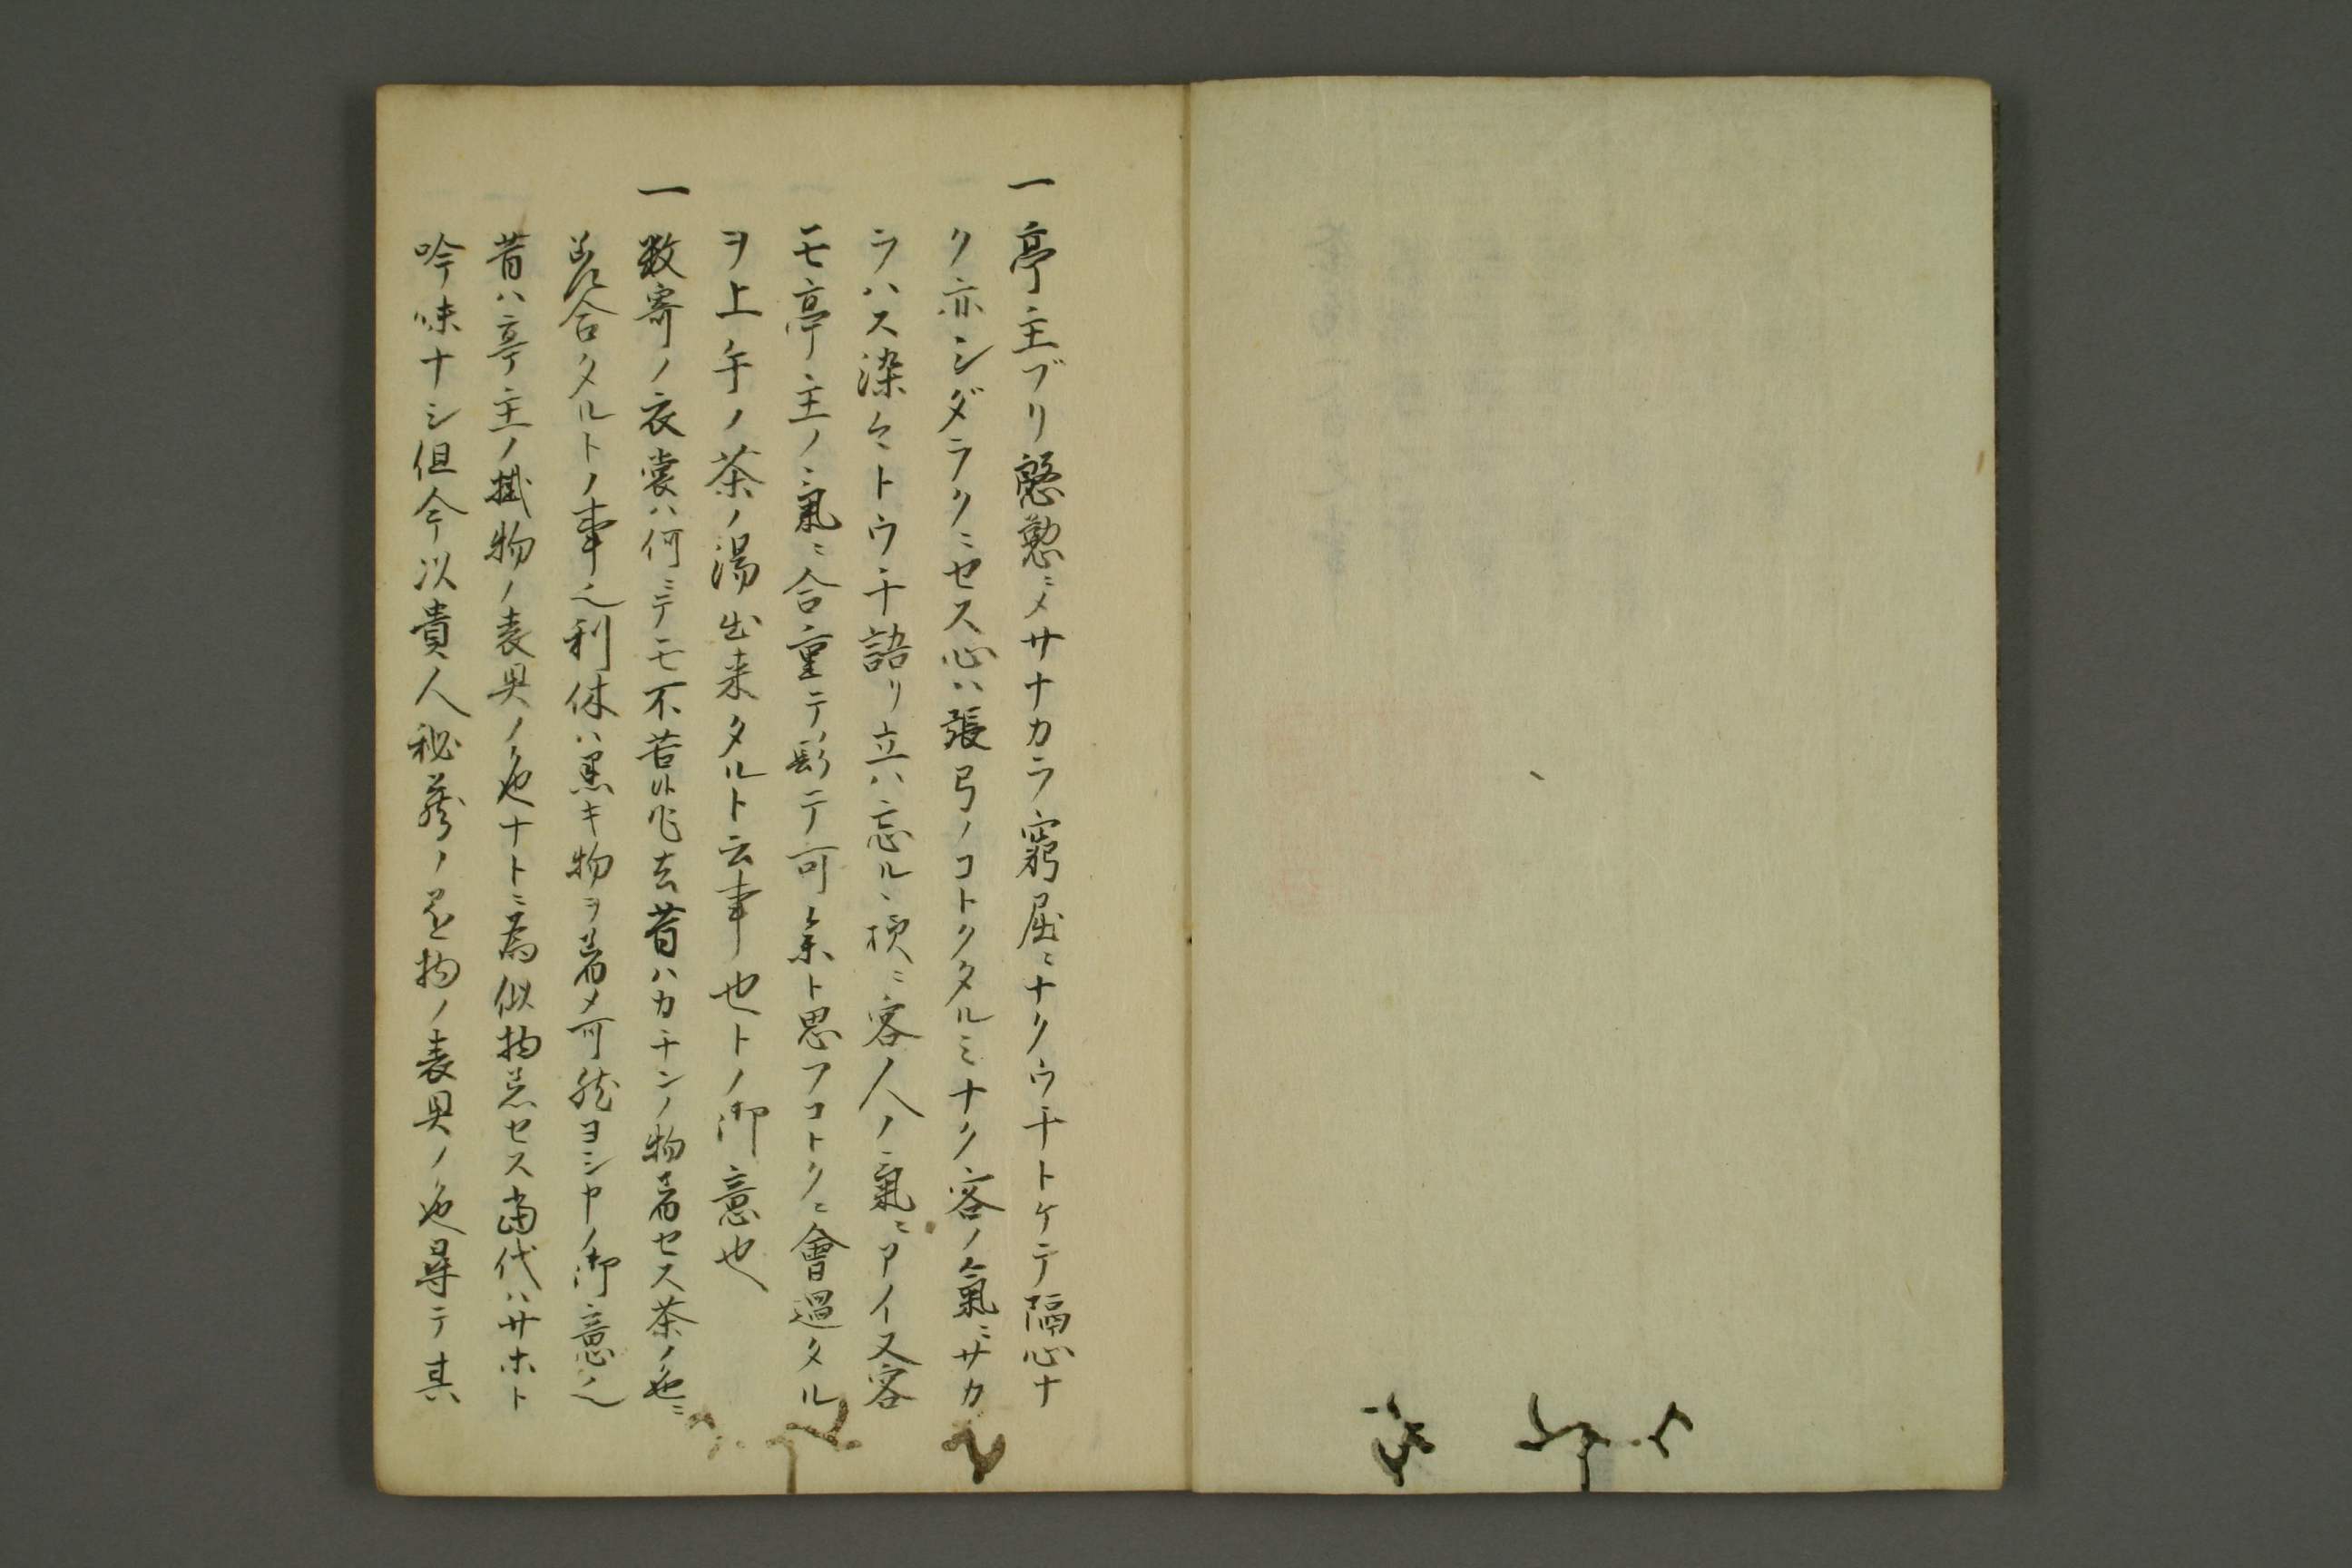 一亭主ブリ慇懃ニメサナカラ窮屈ニナクウチトケテ隔心ナ
ク亦シダラクニセス心ハ張弓ノコトクタルミナク客ノ氣ニサカ
ラハス染々トウチ語リ立ハ忘ルヽ様ニ客人ノ氣ニアイ又客
モ亭主ノ氣ニ合重テノ テ可 ト思フコトクニ會過タル
ヲ上手ノ茶ノ湯出来タルト云事也トノ御意也
一数寄ノ衣裳ハ何ニテモ不苦 去昔ハカチンノ物着セス茶ノ色ニ
差合タルトノ事也利休ハ黒キ物ヲ着メ可然ヨシヤノ御意也
昔ハ亭主ノ掛物ノ表具ノ色ナトニ為似物 セス當代ハサホト
吟味ナシ但今以貴人秘蔵ノ 物ノ表具ノ色尋テ其